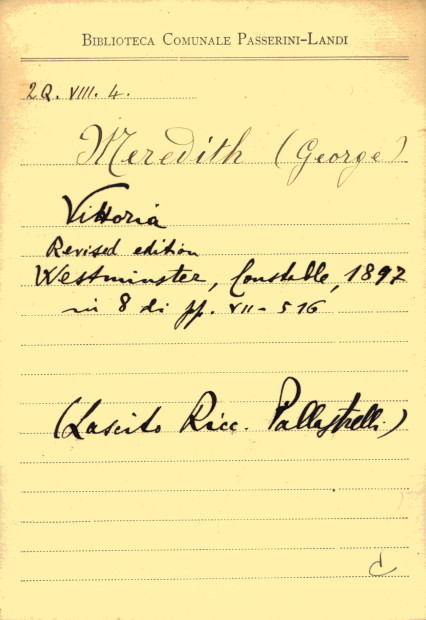 BIBLIOTECA COMUNALE PASSERINI-LANDI
2Q. VIII. 4.
Meredith (George)
Vittoria
Revised edition
Westminster, Constable, 1897
in 8 di pp. VII-516
(Lascito Ricc. Pallastrelli)
C